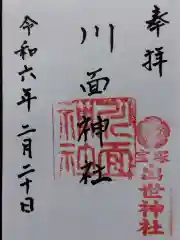 奉拝
川面神社
令和六年二月二十日
川面神社
宝塚
出世神社